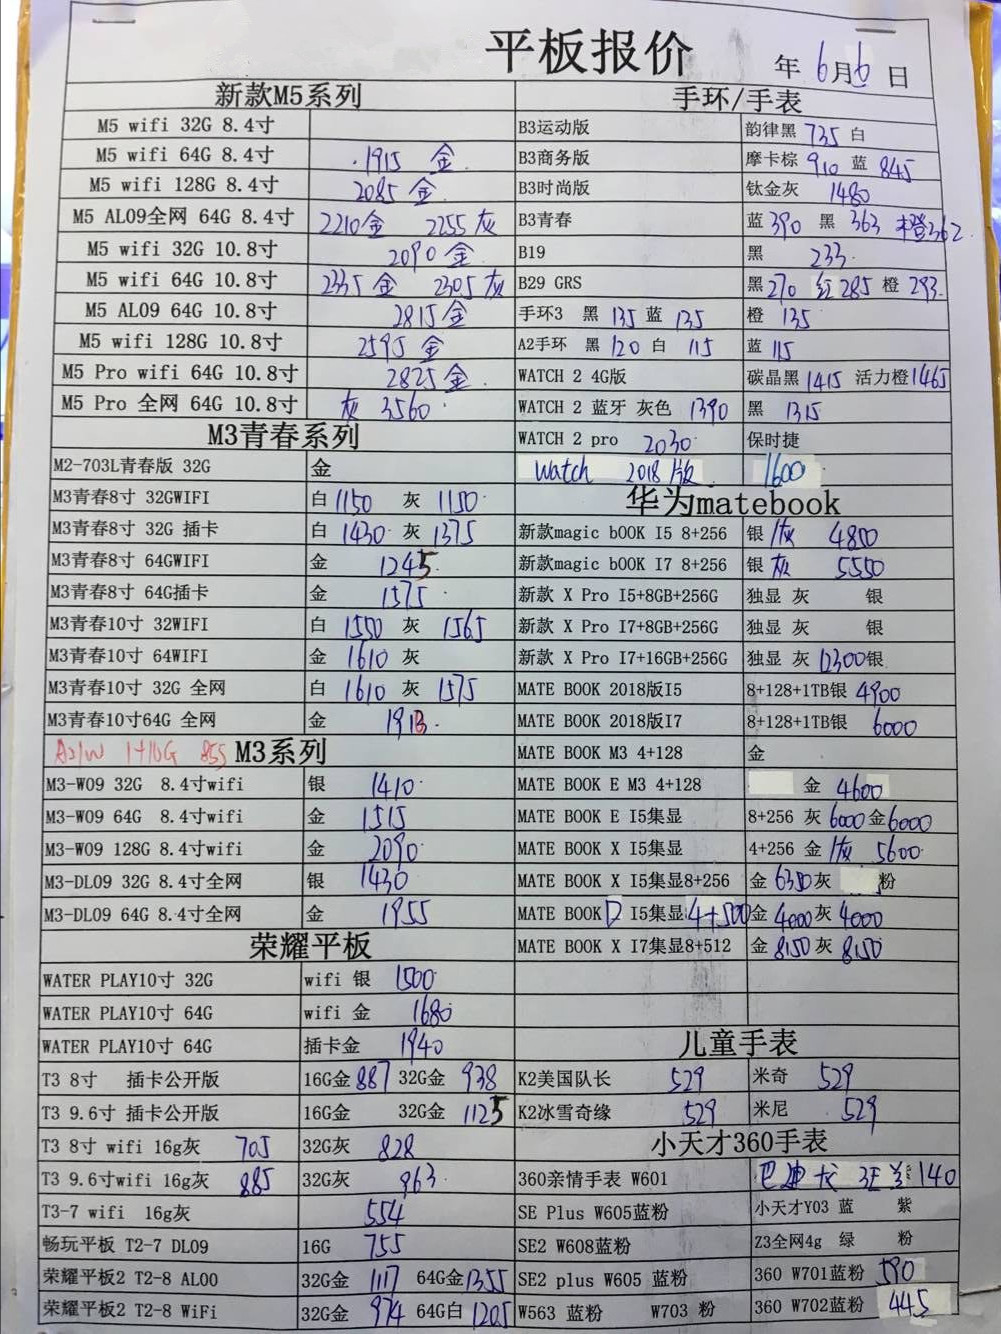 平板报价
年 6月6日
新款M5系列
M5 wifi 32G 8.4寸
M5 wifi 64G 8.4寸 1915 金
M5 wifi 128G 8.4寸 2085 金
M5 AL09全网 64G 8.4寸 2210金 2255灰
M5 wifi 32G 10.8寸 2090 金
M5 wifi 64G 10.8寸 2335金 2305灰
M5 AL09 64G 10.8寸 2815金
M5 wifi 128G 10.8寸 2595 金
M5 Pro wifi 64G 10.8寸 2825金
M5 Pro 全网 64G 10.8寸 灰 3560
M3青春系列
M2-703L青春版 32G 金
M3青春8寸 32GWIFI 白1150 灰 1150
M3青春8寸 32G 插卡 白 1430 灰 1375
M3青春8寸 64GWIFI 金 1245
M3青春8寸 64G插卡 金 1575
M3青春10寸 32WIFI 白 1550 灰 1565
M3青春10寸 64WIFI 金 1610 灰
M3青春10寸 32G 全网 白 1610 灰 1575
M3青春10寸64G 全网 金 1913
1+16G 855 M3系列
M3-W09 32G 8.4寸wifi 银 1410
M3-W09 64G 8.4寸wifi 金 1515
M3-W09 128G 8.4寸wifi 金 2090
M3-DL09 32G 8.4寸全网 银 1430
M3-DL09 64G 8.4寸全网 金 1955
荣耀平板
WATER PLAY10寸 32G wifi 银 1500
WATER PLAY10寸 64G wifi 金 1680
WATER PLAY10寸 64G 插卡金 1940
T3 8寸 插卡公开版 16G金 887 32G金 938
T3 9.6寸 插卡公开版 16G金 32G金 1125
T3 8寸 wifi 16g灰 705 32G灰 828
T3 9.6寸wifi 16g灰 885 32G灰 963
T3-7 wifi 16g灰 554
畅玩平板 T2-7 DL09 16G 755
荣耀平板2 T2-8 AL00 32G金 1117 64G金1355
荣耀平板2 T2-8 WiFi 32G金 974 64G白 1205
手环/手表
B3运动版 韵律黑 735 白
B3商务版 摩卡棕 910 蓝 845
B3时尚版 钛金灰 1480
B3青春 蓝 390 黑 363 橙362
B19 黑 233
B29 GRS 黑270 红285 橙 293
手环3 黑 135 蓝 135 橙 135
A2手环 黑 120 白 115 蓝 115
WATCH 2 4G版 碳晶黑1415 活力橙1465
WATCH 2 蓝牙 灰色 1390 黑 1315
WATCH 2 pro 2030 保时捷
Watch 2018版 1600
华为matebook
新款magic bOOK I5 8+256 银 灰 4800
新款magic bOOK I7 8+256 银 灰 5550
新款 X Pro I5+8GB+256G 独显 灰 银
新款 X Pro I7+8GB+256G 独显 灰 银
新款 X Pro I7+16GB+256G 独显 灰 12300银
MATE BOOK 2018版I5 8+128+1TB银 4900
MATE BOOK 2018版I7 8+128+1TB银 6000
MATE BOOK M3 4+128 金
MATE BOOK E M3 4+128 金 4600
MATE BOOK E I5集显 8+256 灰 6000金6000
MATE BOOK X I5集显 4+256 金 灰 5600
MATE BOOK X I5集显8+256 金 6350灰 粉
MATE BOOK D I5集显 4+500 金 4000灰 4000
MATE BOOK X I7集显8+512 金 8150灰 8150
儿童手表
K2美国队长 529 米奇 529
K2冰雪奇缘 529 米尼 529
小天才360手表
360亲情手表 W601 巴迪龙 140
SE Plus W605蓝粉 小天才Y03 蓝 紫
SE2 W608蓝粉 Z3全网4g 绿 粉
SE2 plus W605 蓝粉 360 W701蓝粉 590
W563 蓝粉 W703 粉 360 W702蓝粉 445